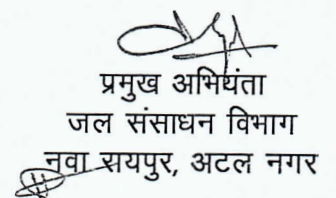 प्रमुख अभियंता
जल संसाधन विभाग
नवा रायपुर, अटल नगर